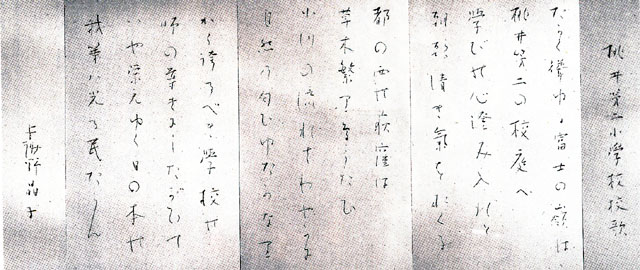 桃井第二小學校校歌
たかく聳ゆる富士の嶺は
桃井第二の校庭へ
學びの心澄み入れと
朝朝清き氣をおくる
都の西の荻窪は
草木繁り鳥うたひ
小川の流れさわやかに
自然の匂ひゆたかなり
かく誇るべき學校の
師の教へにしたがひて
いや栄えゆく日の本の
我等は光る民たらん
与謝野晶子